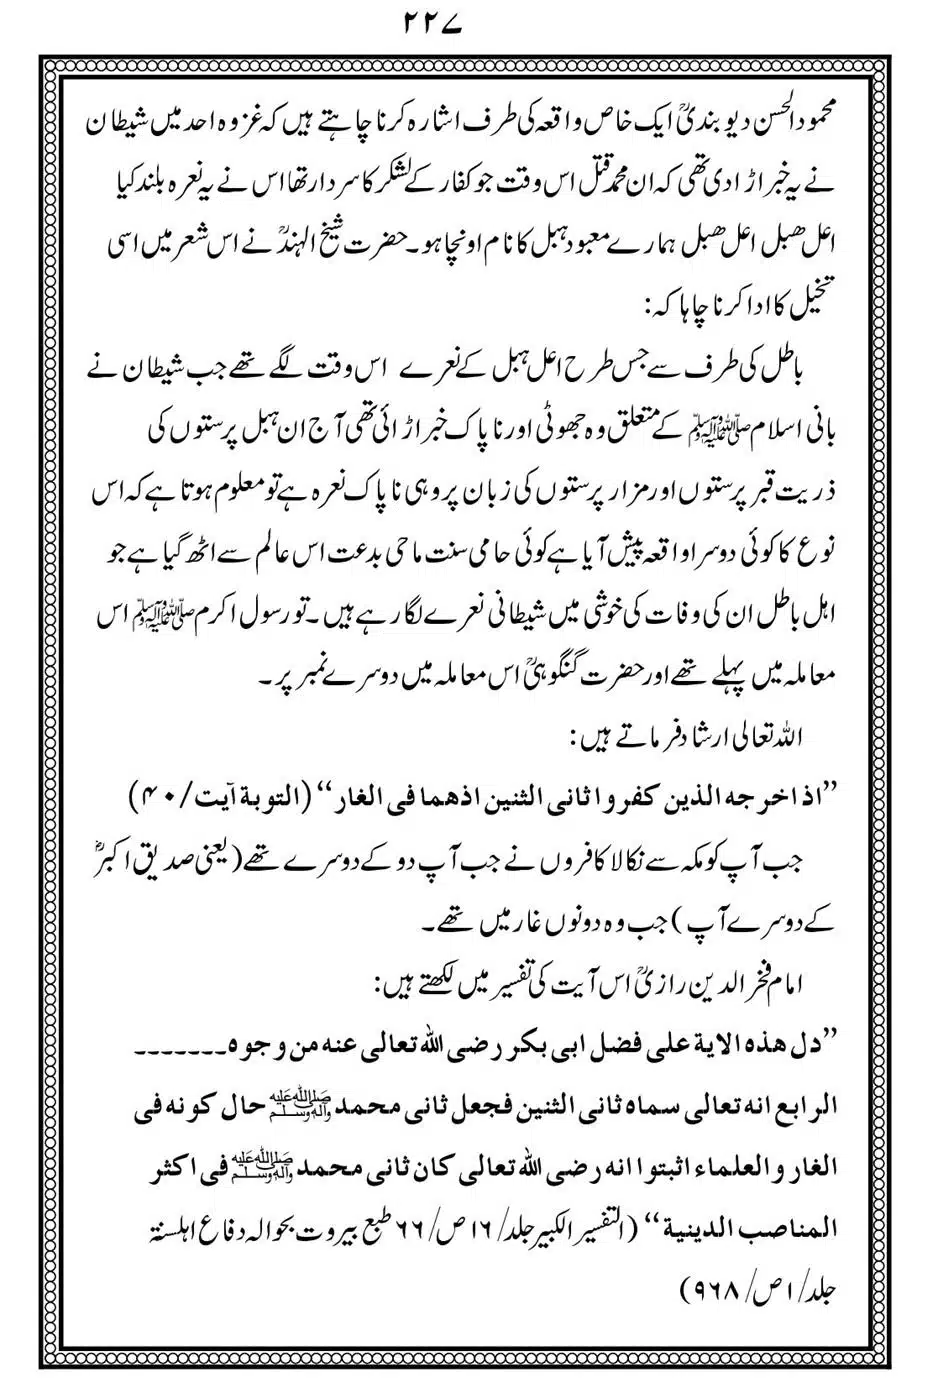 ۲۲۷
محمود الحسن دیوبندیؒ ایک خاص واقعہ کی طرف اشارہ کرنا چاہتے ہیں کہ غزوہ احد میں شیطان
نے یہ خبر اڑا دی تھی کہ ان محمد قتل اس وقت جو کفار کے لشکر کا سردار تھا اس نے یہ نعرہ بلند کیا
اعل ھبل اعل ھبل ہمارے معبود ہبل کا نام اونچا ہو۔ حضرت شیخ الہندؒ نے اس شعر میں اسی
تخیل کا ادا کرنا چاہا کہ:
باطل کی طرف سے جس طرح اعل ہبل کے نعرے اس وقت لگے تھے جب شیطان نے
بانی اسلام ﷺ کے متعلق وہ جھوٹی اور ناپاک خبر اڑائی تھی آج ان ہبل پرستوں کی
ذریت قبر پرستوں اور مزار پرستوں کی زبان پر وہی ناپاک نعرہ ہے تو معلوم ہوتا ہے کہ اس
نوع کا کوئی دوسرا واقعہ پیش آیا ہے کوئی حامی سنت ماحی بدعت اس عالم سے اٹھ گیا ہے جو
اہل باطل ان کی وفات کی خوشی میں شیطانی نعرے لگا رہے ہیں۔ تو رسول اکرم ﷺ اس
معاملہ میں پہلے تھے اور حضرت گنگوہیؒ اس معاملہ میں دوسرے نمبر پر۔
اللہ تعالی ارشاد فرماتے ہیں:
”اذ اخرجه الذین کفروا ثانی الثنین اذهما فی الغار“ (التوبة آیت/۴۰)
جب آپ کو مکہ سے نکالا کافروں نے جب آپ دو کے دوسرے تھے (یعنی صدیق اکبرؓ
کے دوسرے آپ) جب وہ دونوں غار میں تھے۔
امام فخر الدین رازیؒ اس آیت کی تفسیر میں لکھتے ہیں:
”دل هذه الایة علی فضل ابی بکر رضی الله تعالی عنه من وجوه۔۔۔۔۔۔۔
الرابع انه تعالی سماه ثانی الثنین فجعل ثانی محمد ﷺ حال کونه فی
الغار والعلماء اثبتوا انه رضی الله تعالی کان ثانی محمد ﷺ فی اکثر
المناصب الدینیة“ (التفسیر الکبیر جلد/۱۶ ص/۶۶ طبع بیروت بحوالہ دفاع اہلسنۃ
جلد/۱ ص/۹۶۸)